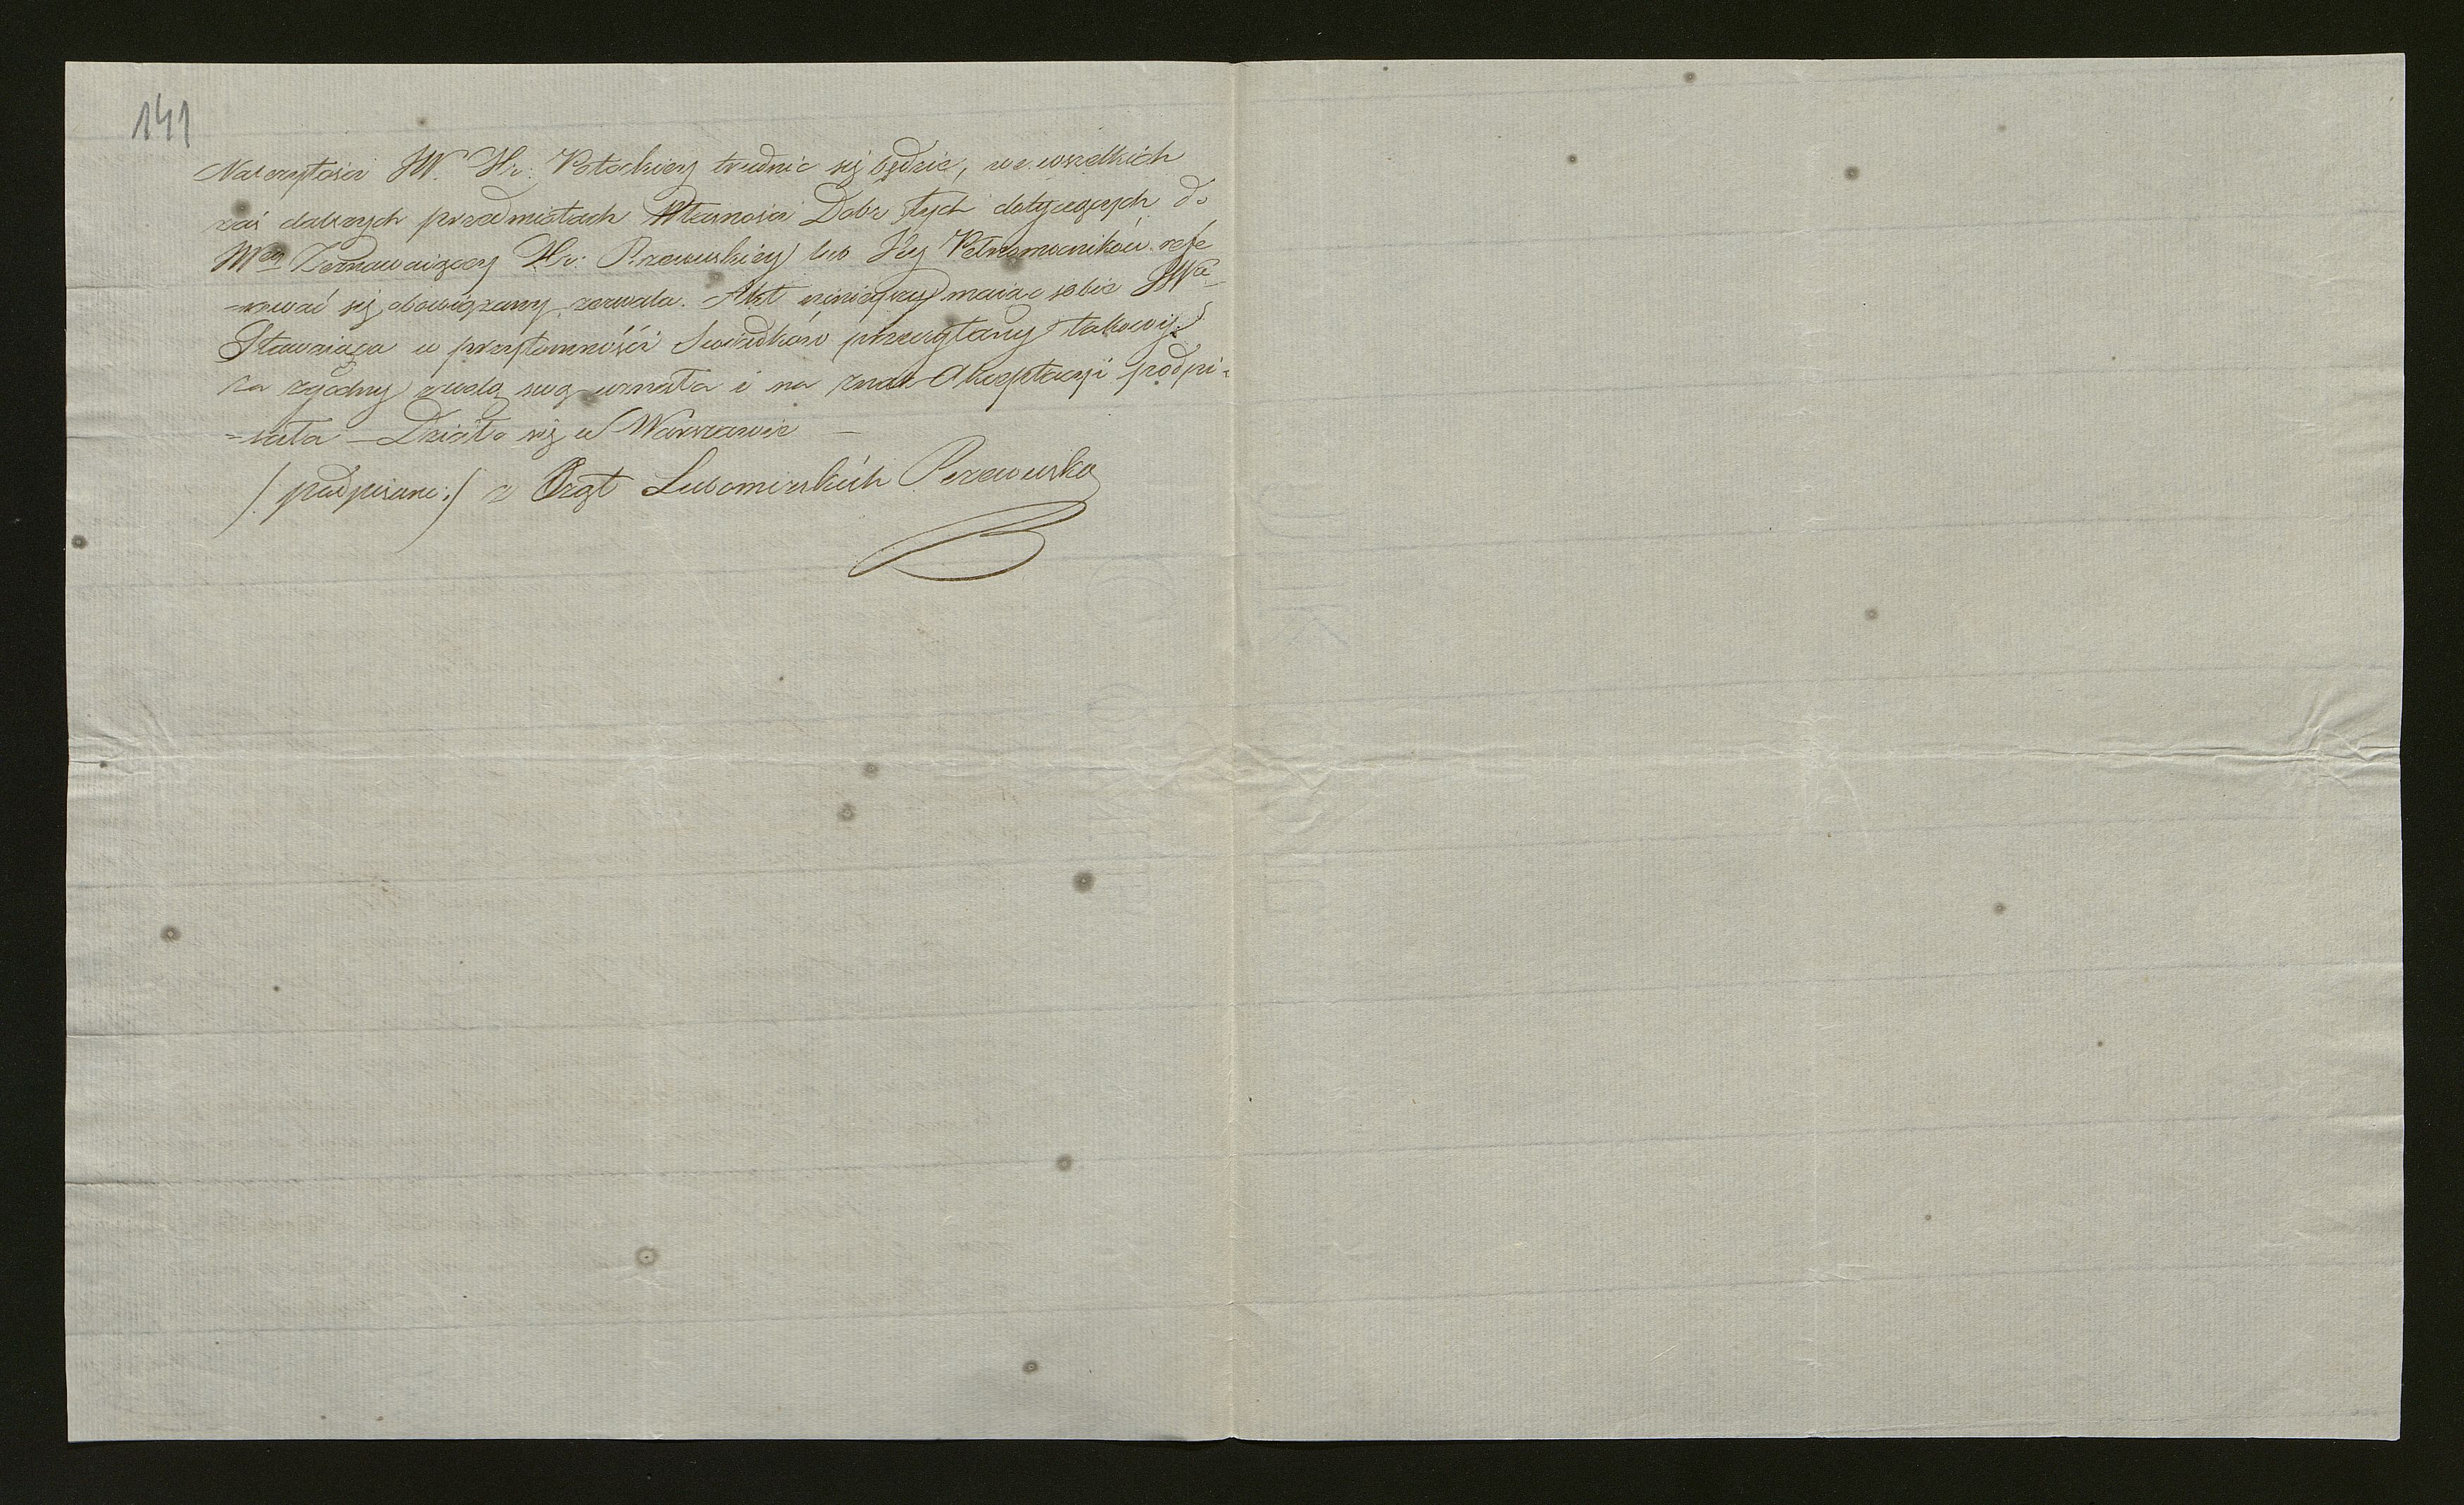 141
Należytości JW. Hr: Potockiey trudnić się będzie, we wszelkich
zaś dalszych przedmiotach Własności Dobr tych dotyczących do
Hr: Rzewuskiey lub Jey Pełnomocników refe
=rować się obowiązany zezwala. Akt ninieyszy maiąc sobie JWa
Stawaiąca w przytomności Swiadków przeczytany takowy
za zgodny z wolą swą uznała i na znak Akceptacyi podpi=
=sała – Działo się w Warszawie –
/podpisano:/ z Xżąt Lubomirskich Rzewuska